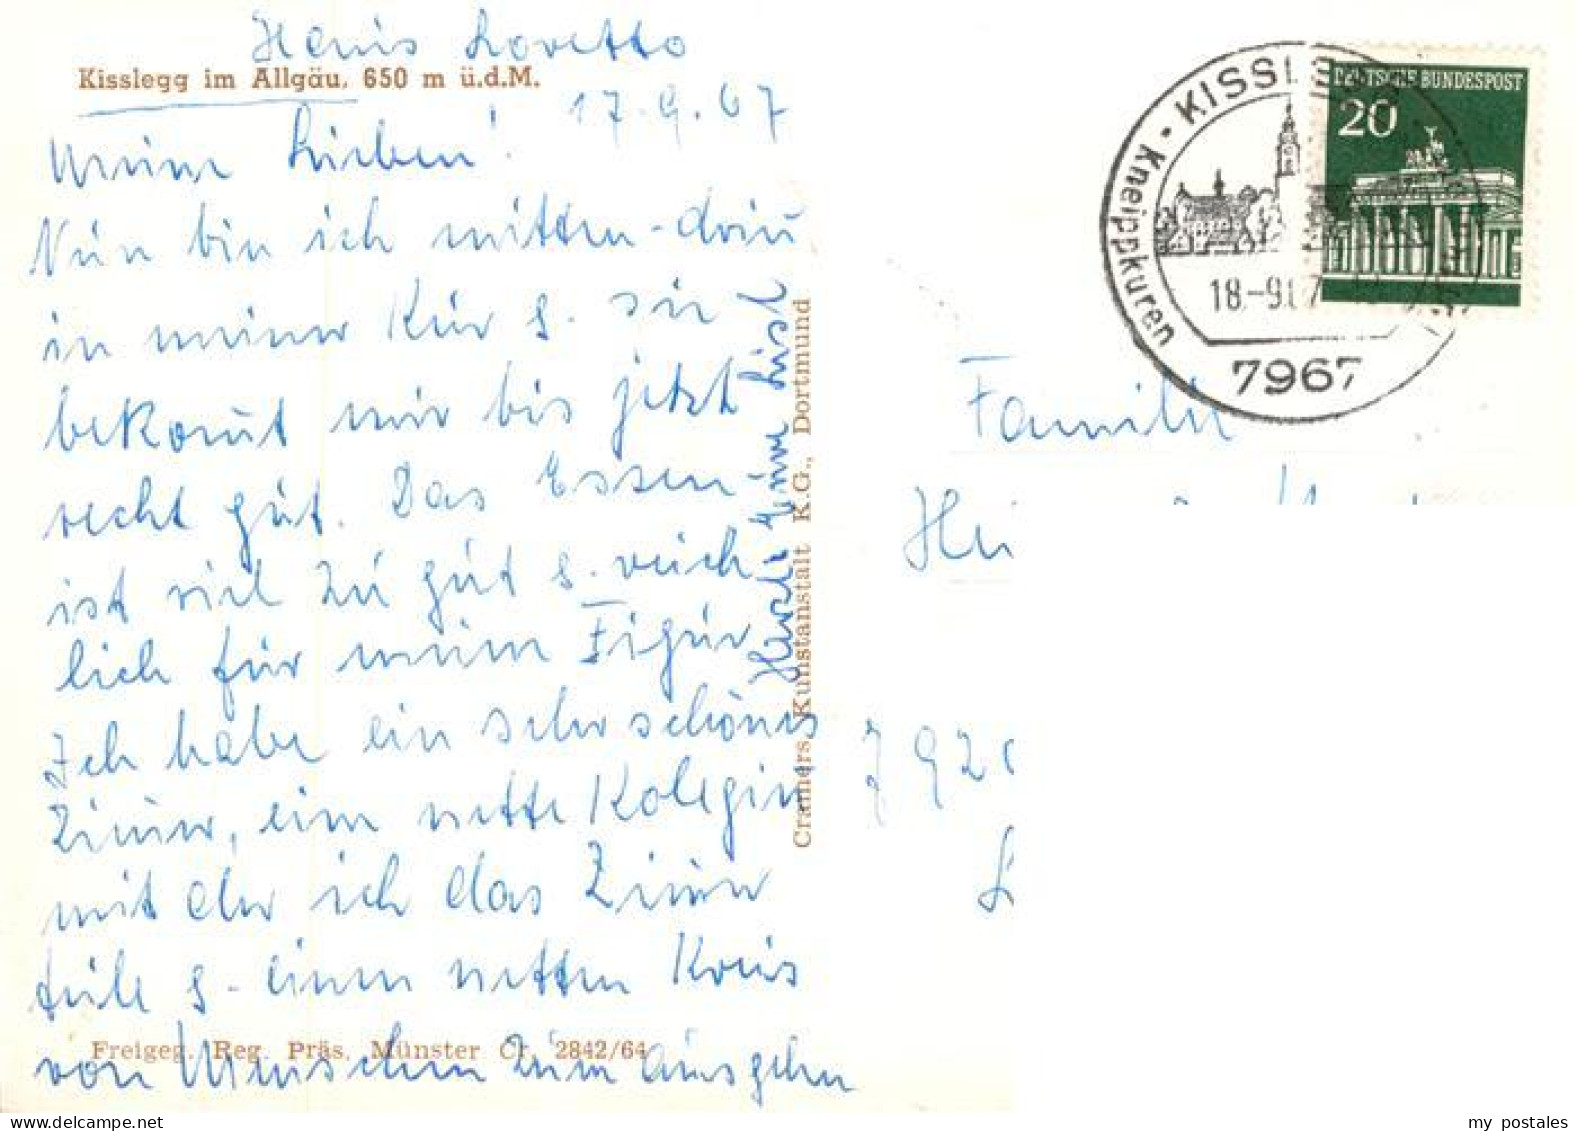 Haus Loretto
Kisslegg im Allgäu, 650 m ü.d.M.
17.9.67
Meine Lieben!
Nun bin ich mitten-drin
in meiner Kur &. sie
bekomt mir bis jetzt
recht gut. Das Essen
ist viel zu gut &. reich
lich für meine Figur
Ich habe ein sehr schönes
Zimmer, eine nette Kolegin
mit der ich das Zimmer
teile &. einen netten Kreis
von Menschen zum Ausgehn
Herzl. Eure Lisl
Freigeg. Reg. Präs. Münster Cr. 2842/64
Cramers Kunstanstalt K.G., Dortmund
DEUTSCHE BUNDESPOST
20
KISSLEGG
Kneippkuren
18.-9.67
7967
Familie
Hei
792
my postales